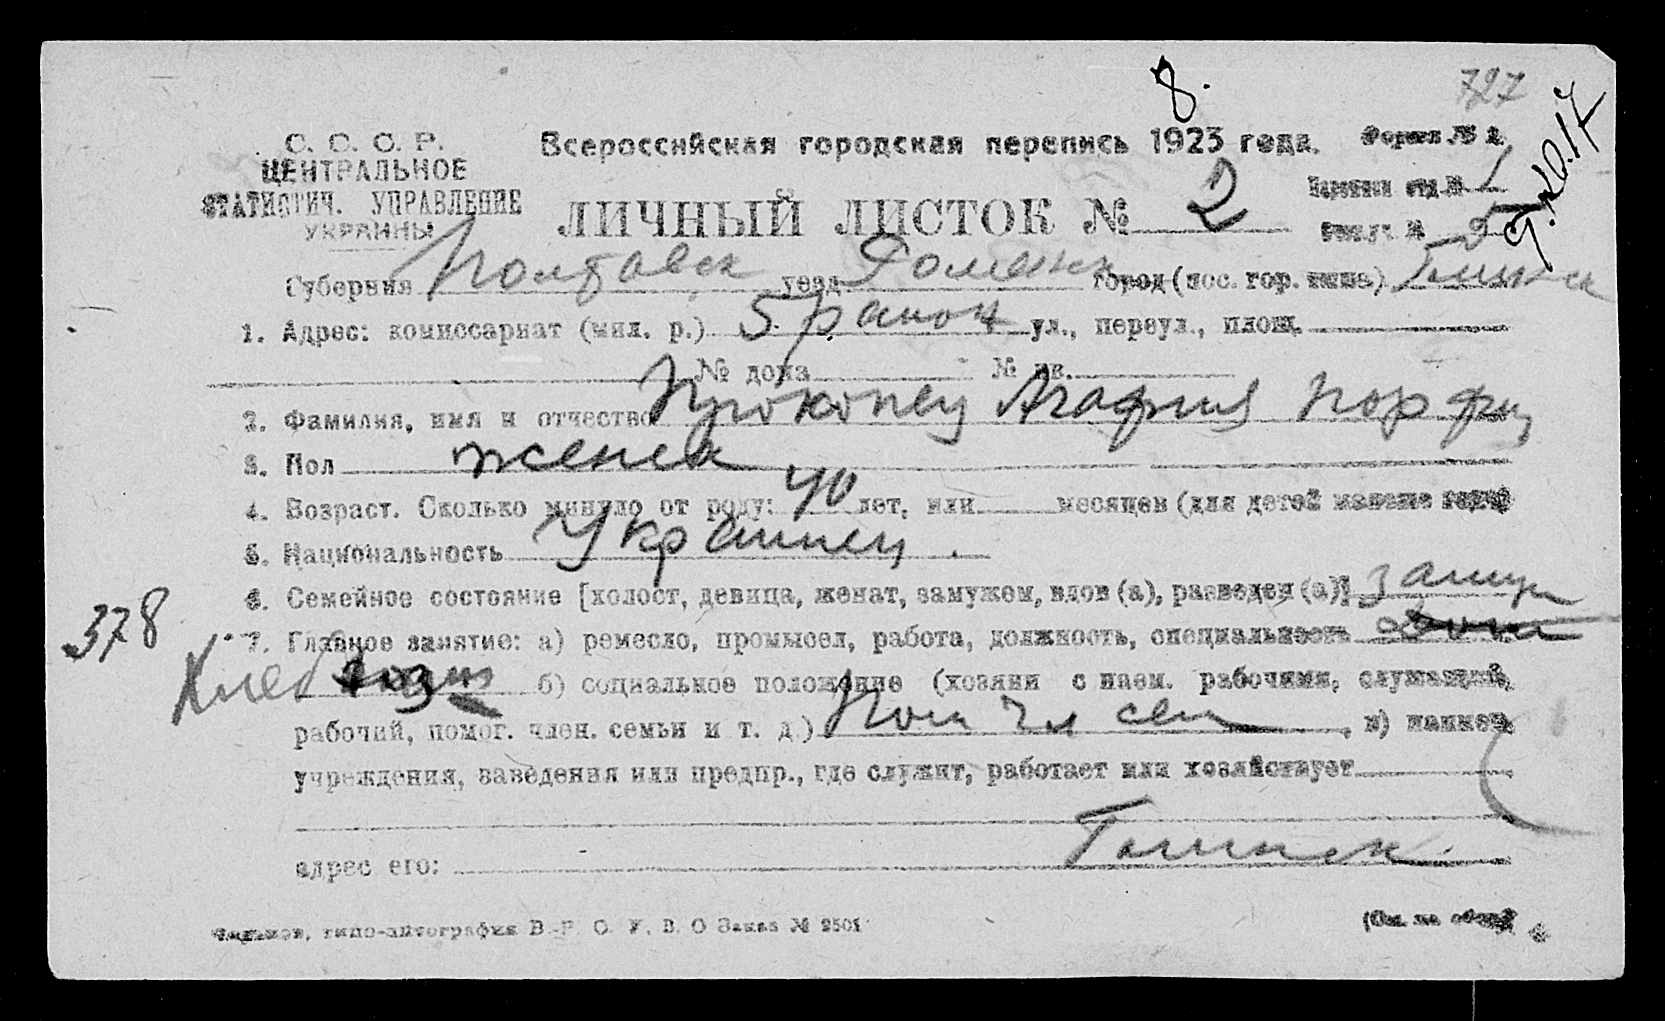 8.
727
С. С. С. Р.
ЦЕНТРАЛЬНОЕ
СТАТИСТИЧ. УПРАВЛЕНИЕ
УКРАИНЫ
Всероссийская городская перепись 1923 года.
Форма № 2.
ЛИЧНЫЙ ЛИСТОК № 2
Губерния Полтавск уезд Роменск город (пос. гор. типа) Глинск
1. Адрес: комиссариат (мил. р.) 5 район ул., переул., площ.
№ дома № кв.
2. Фамилия, имя и отчество Прокопец Агафия Порфир
3. Пол женск
4. Возраст. Сколько минуло от роду: 40 лет, или месяцев (для детей моложе года)
5. Национальность Украинец.
6. Семейное состояние [холост, девица, женат, замужем, вдов (а), разведен (а)] замуж
378
7. Главное занятие: а) ремесло, промысел, работа, должность, специальность
б) социальное положение (хозяин с наем. рабочими, служащий,
рабочий, помог. член. семьи и т. д.) Пом чл сем, в) наимен.
учреждения, заведения или предпр., где служит, работает или хозяйствует
адрес его: Глинск
типо-литография В. О Заказ № 2501
(См. на обор.)